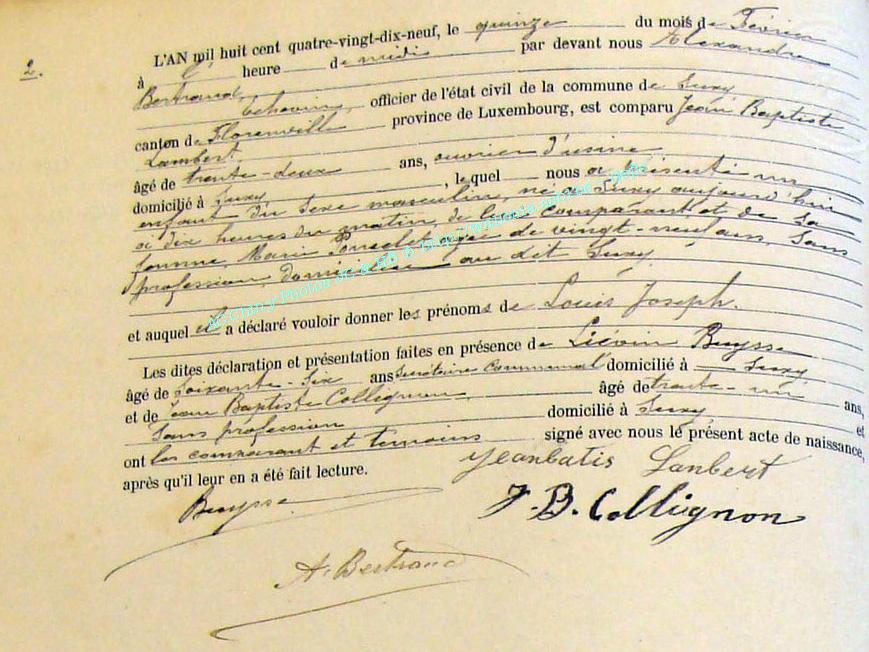 2.
L'AN mil huit cent quatre-vingt-dix-neuf, le quinze du mois de Février
à l' heure de midi par devant nous Alexandre
Bertrand, Echevin, officier de l'état civil de la commune de Suxy
canton de Florenville province de Luxembourg, est comparu Jean Baptiste
Lambert
âgé de trente-deux ans, ouvrier d'usine
domicilié à Suxy, lequel nous a présenté un
enfant du sexe masculin, né à Suxy aujourd'hui
à dix heures du matin, de lui comparant et de sa
femme, Marie Poncelet, âgée de vingt-neuf ans, sans
profession, domiciliée au dit Suxy.
et auquel il a déclaré vouloir donner les prénoms de Louis Joseph.
Les dites déclaration et présentation faites en présence de Liévin Buysse
âgé de Soixante-Six ans Secrétaire Communal domicilié à Suxy
et de Jean Baptiste Collignon âgé de trente-un ans,
Sans profession domicilié à Suxy et
ont les comparant et temoins signé avec nous le présent acte de naissance,
après qu'il leur en a été fait lecture.
Jeanbatis Lanbert
Buysse
J. B. Collignon
A. Bertrand